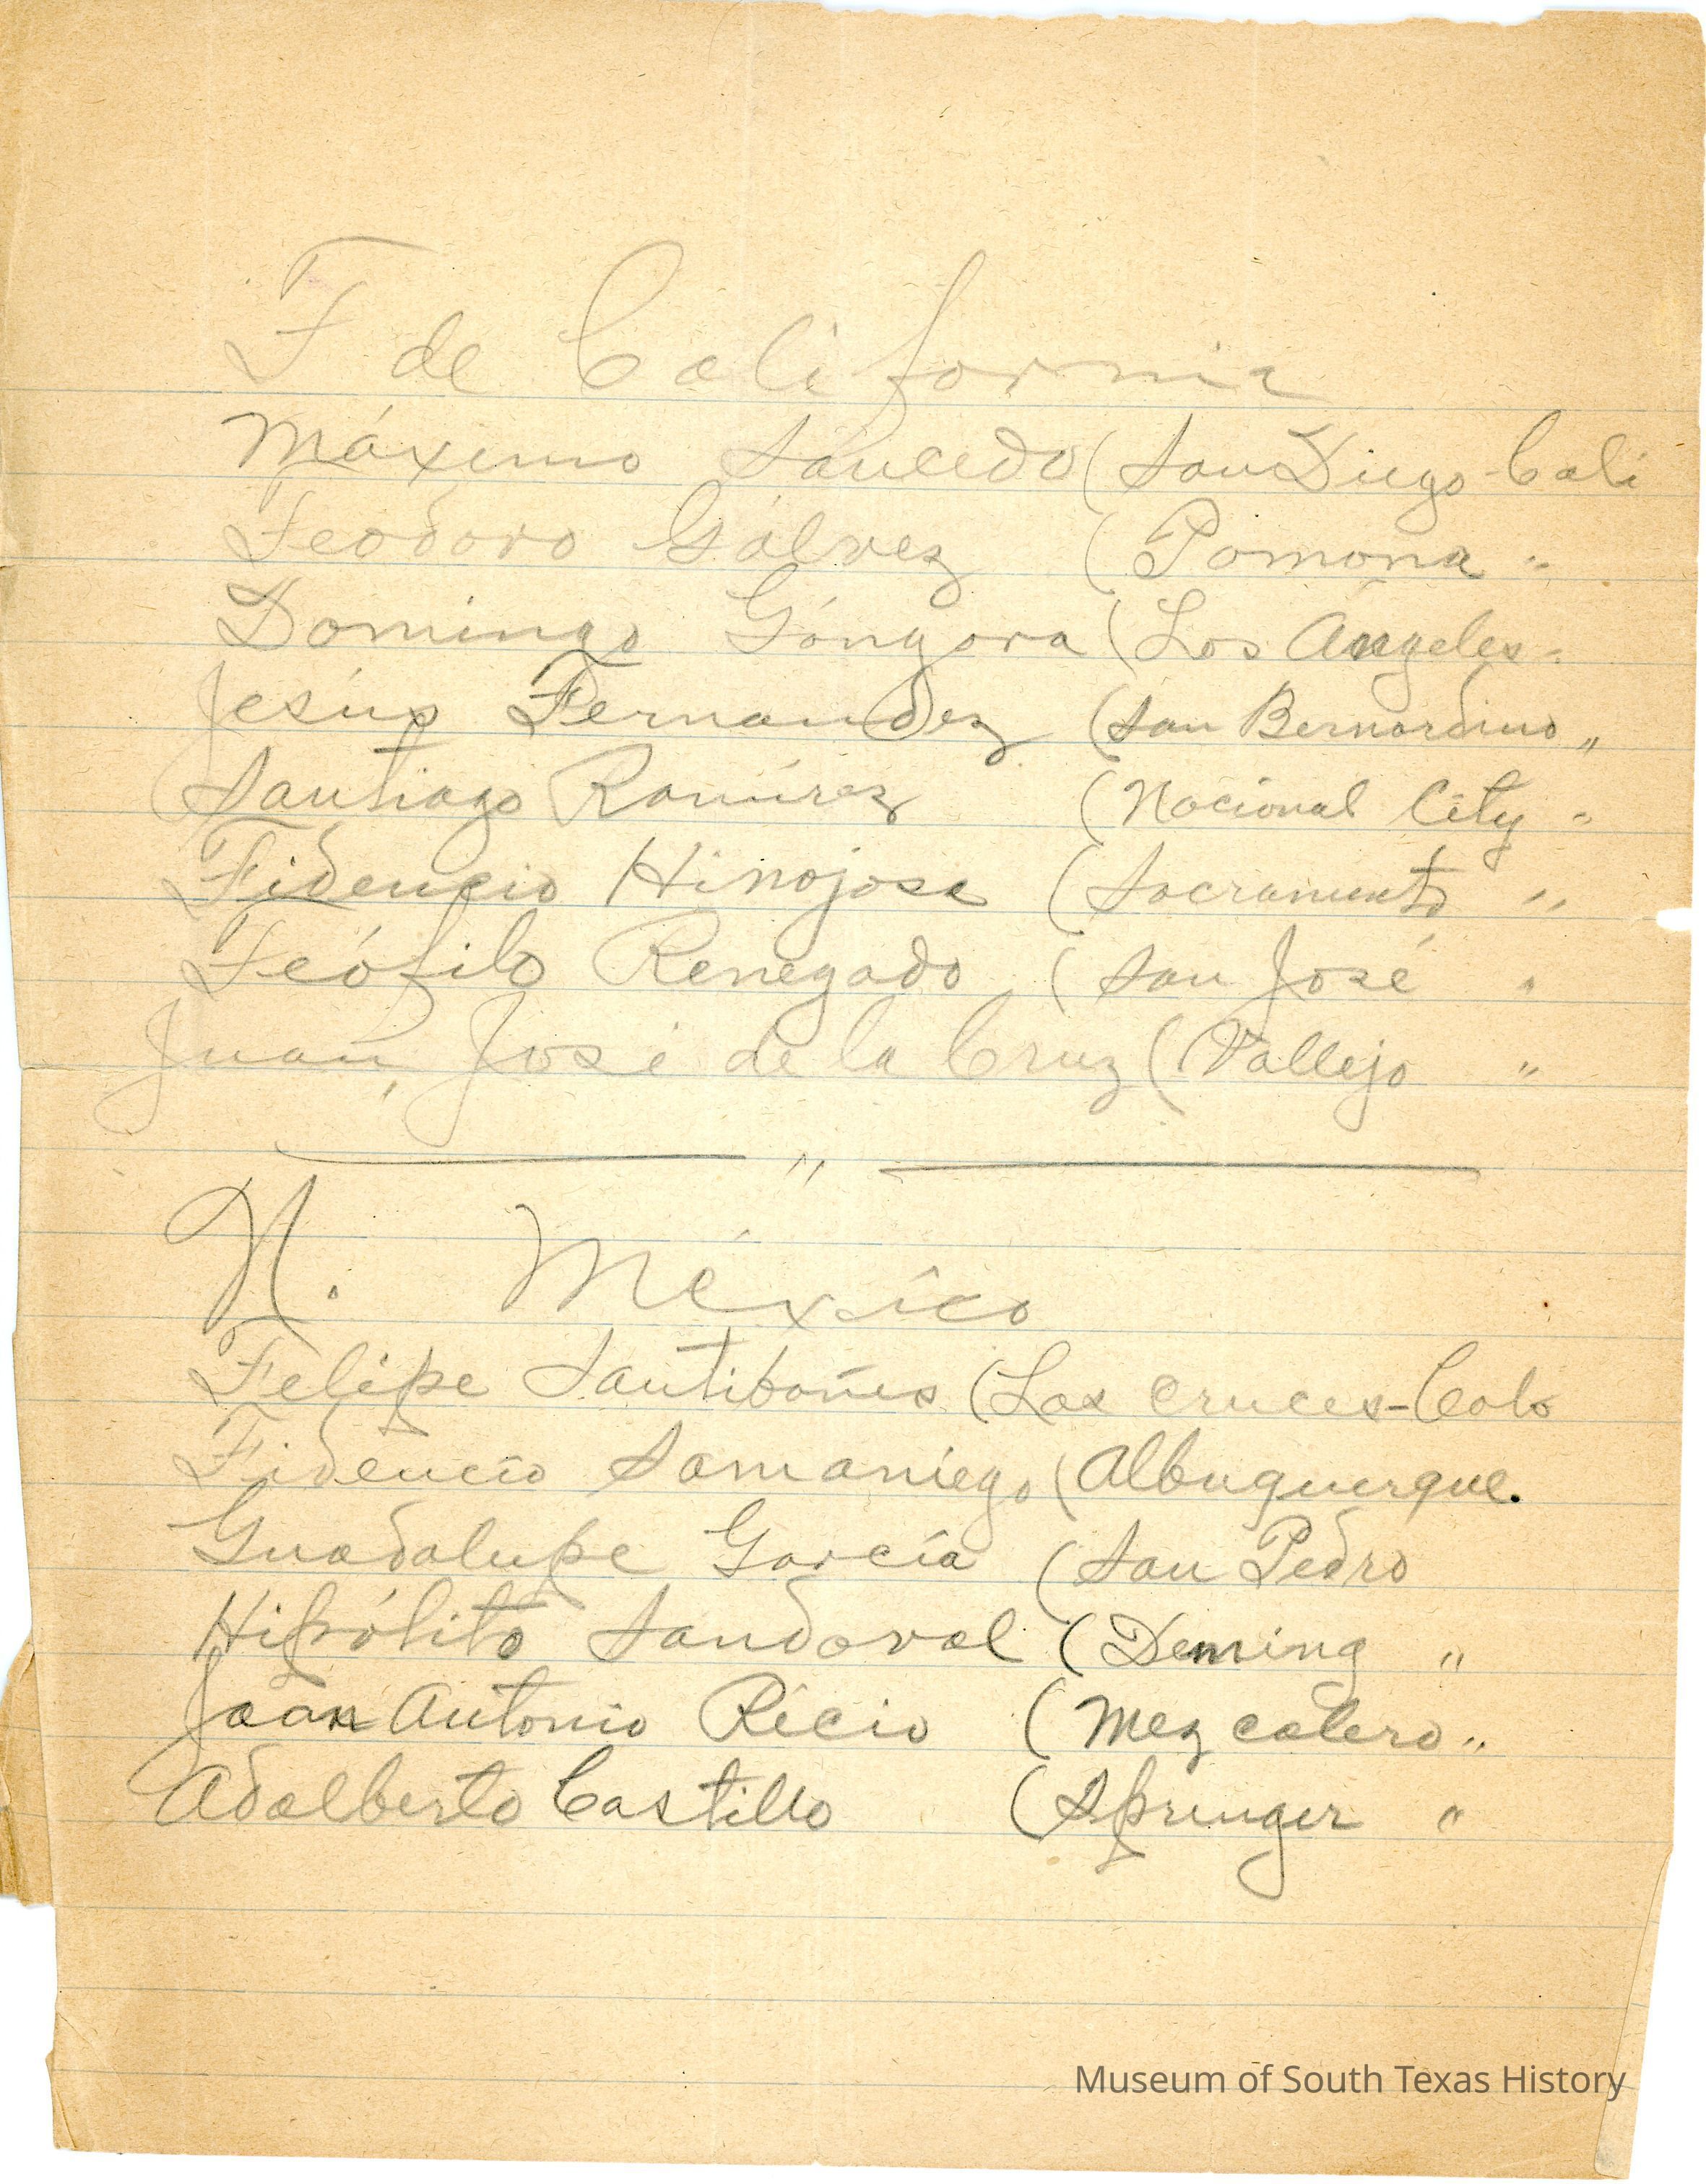 F de California
Máximo Saucedo (San Diego Cali
Teodoro Gálvez (Pomona "
Domingo Góngora (Los Ángeles "
Jesús Fernandez (San Bernardino "
Santiago Ramírez (Nacional City "
Fidencio Hinojosa (Sacramento "
Teófilo Renegado (San José "
Juan José de la Cruz (Vallejo "
"
N. México
Felipe Santibañes (Las Cruces-Colo
Fidencio Samaniego (Albuquerque.
Guadalupe García (San Pedro
Hipólito Sandoval (Deming "
Joan Antonio Récio (Mezcalero "
Adalberto Castillo (Springer "
Museum of South Texas History